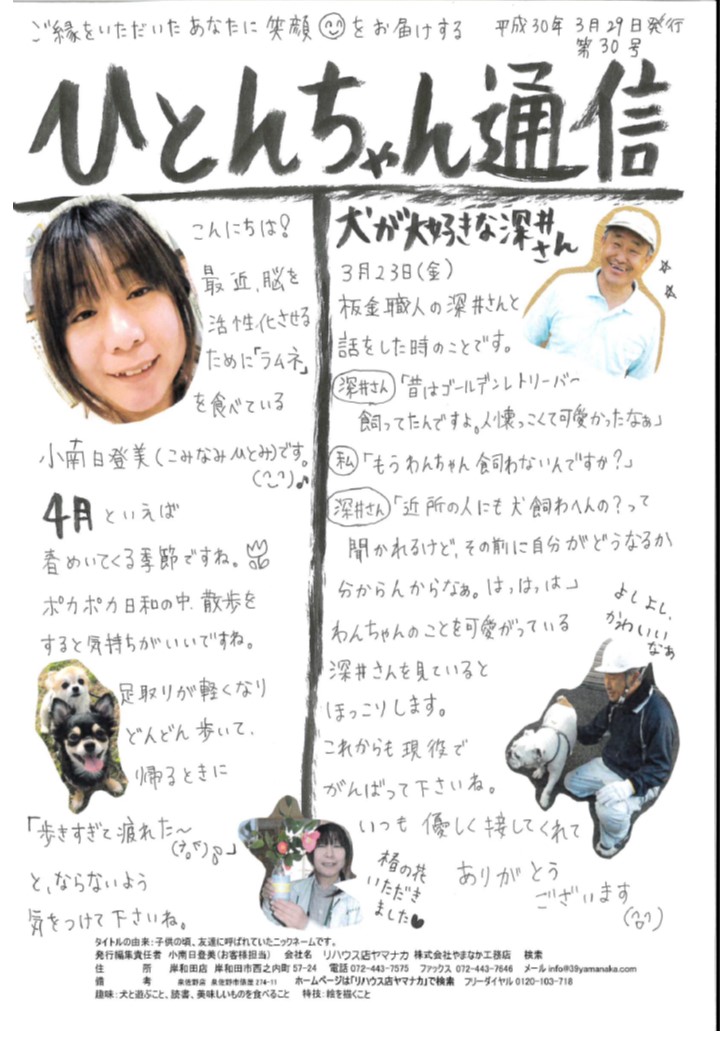 ご縁をいただいた あなたに 笑顔をお届けする
平成30年 3月29日発行
第30号
ひとんちゃん通信
こんにちは!
最近、脳を
活性化させる
ために「ラムネ」
を食べている
小南日登美(こみなみひとみ)です。
4月 といえば
春めいてくる季節ですね。
ポカポカ日和の中、散歩を
すると気持ちがいいですね。
足取りが軽くなり
どんどん歩いて、
帰るときに
「歩きすぎて疲れた〜
」
と、ならないよう
気をつけて下さいね。
犬が大好きな深井
さん
3月23日(金)
板金職人の深井さんと
話をした時のことです。
深井さん「昔はゴールデンレトリーバー
飼ってたんですよ。人懐っこくて可愛かったなぁ」
私「もうわんちゃん飼わないんですか?」
深井さん「近所の人にも犬飼わへんの?って
聞かれるけど、その前に自分がどうなるか
分からんからなぁ。はっはっは」
わんちゃんのことを可愛がっている
深井さんを見ていると
ほっこりします。
これからも現役で
がんばって下さいね。
いつも優しく接してくれて
ありがとう
ございます
よしよし、
かわいい
なぁ
椿の花
いただき
ました
タイトルの由来:子供の頃、友達に呼ばれていたニックネームです。
発行編集責任者 小南日登美(お客様担当) 会社名 リハウス店ヤマナカ 株式会社やまなか工務店 検索
住 所 岸和田店 岸和田市西之内町57-24 電話 072-443-7575 ファックス 072-443-7646 メール info@39yamanaka.com
備 考 泉佐野店 泉佐野市俵屋274-11 ホームページは「リハウス店ヤマナカ」で検索 フリーダイヤル 0120-103-718
趣味:犬と遊ぶこと、読書、美味しいものを食べること 特技:絵を描くこと